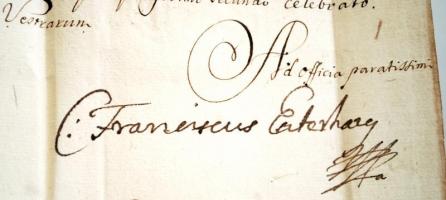 secundo Celebrato.
Vestrarum
Ad officia paratissimi
C: Franciscus Esterhazy